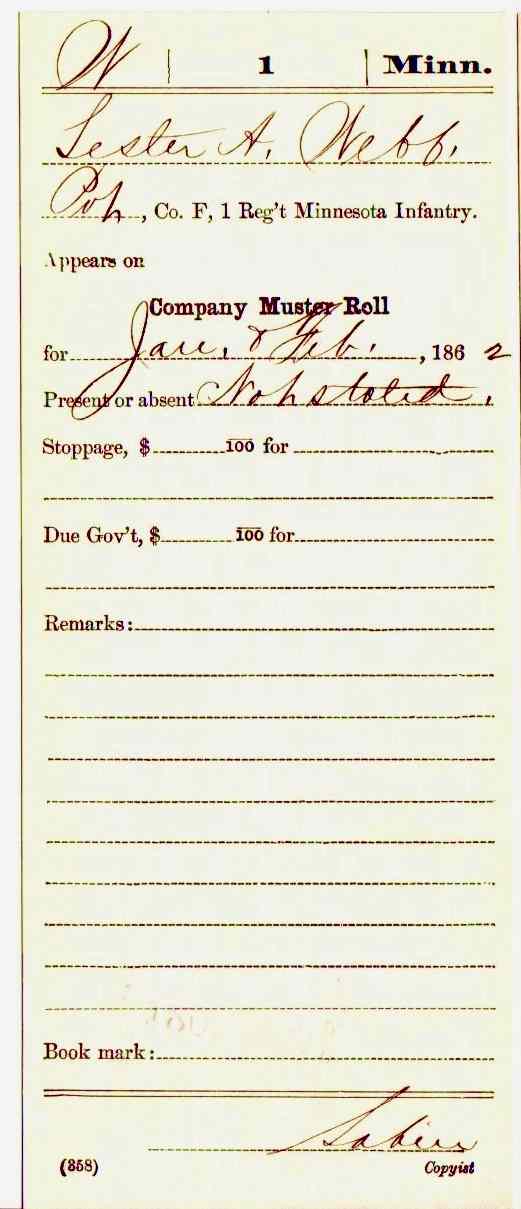 W | 1 | Minn.
Lester A. Webb.
Pvt, Co. F, 1 Reg't Minnesota Infantry.
Appears on
Company Muster Roll
for Jan. & Feb. , 186 2
Present or absent Not stated.
Stoppage, $ 100 for
Due Gov't, $ 100 for
Remarks:
Book mark:
Sabin
(358) Copyist